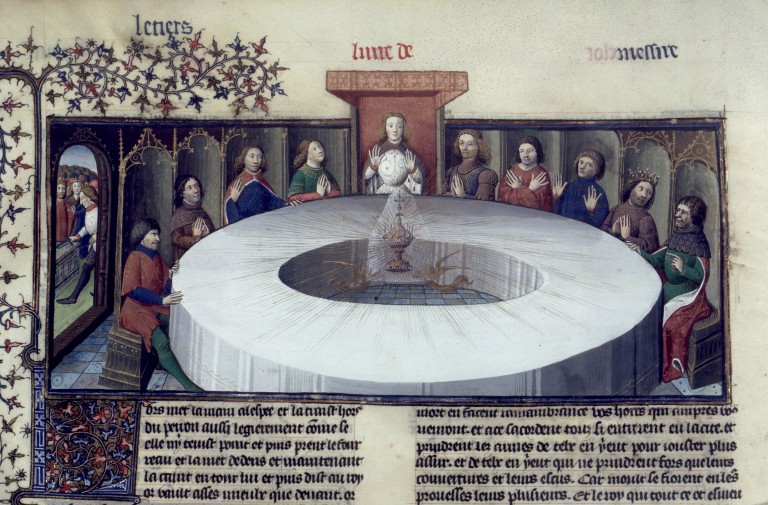 letiers
liure de
messire
ors met la main a lespee et la traist hors
du perron aussi legierement come se
elle ny tenist point et puis prent le four
reau et la met dedens et maintenant
la caint en tour lui et puis dist au roy
or vault asses mieulx que deuant. or
mort en facent ramambrance vos hoirs qui empres vo
uemont. et ace sacordent tous si entirent en la cite. et
prindrent les armes de telx en y eut pour iouster plus
assur. et de telx en y eut qui ne prindrent fors que leurs
couuertures et leurs escus. Car moult se fioient en les
prouesses leurs plusieurs. Et le roy qui tout ce ot